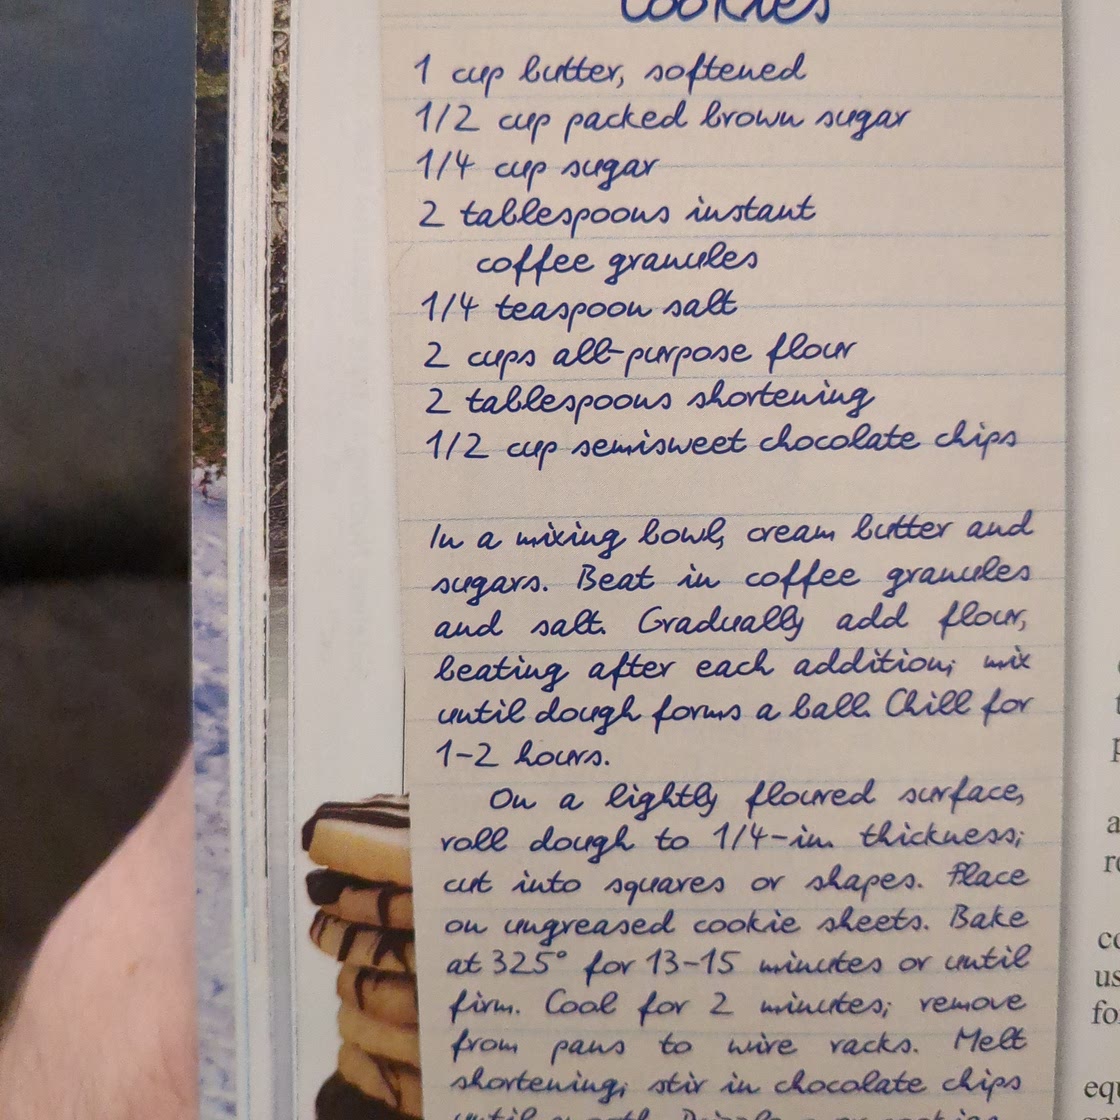 Cookies
1 cup butter, softened
1/2 cup packed brown sugar
1/4 cup sugar
2 tablespoons instant
coffee granules
1/4 teaspoon salt
2 cups all-purpose flour
2 tablespoons shortening
1/2 cup semisweet chocolate chips
In a mixing bowl, cream butter and
sugars. Beat in coffee granules
and salt. Gradually add flour,
beating after each addition; mix
until dough forms a ball. Chill for
1-2 hours.
On a lightly floured surface,
roll dough to 1/4-in. thickness;
cut into squares or shapes. Place
on ungreased cookie sheets. Bake
at 325° for 13-15 minutes or until
firm. Cool for 2 minutes; remove
from pans to wire racks. Melt
shortening; stir in chocolate chips